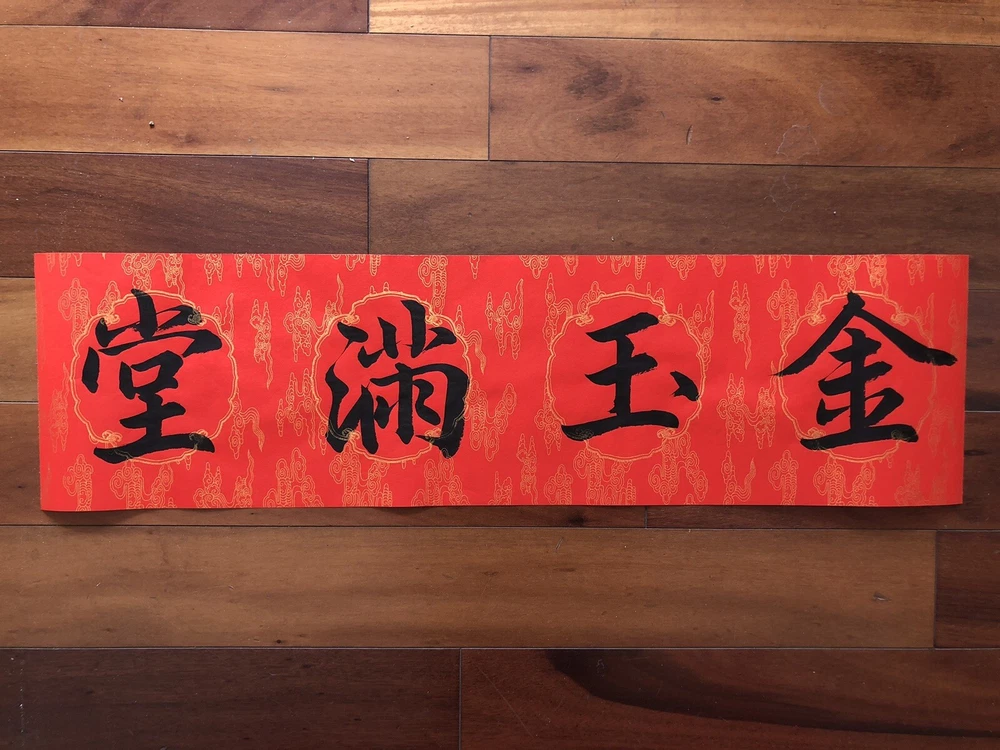 金玉滿堂